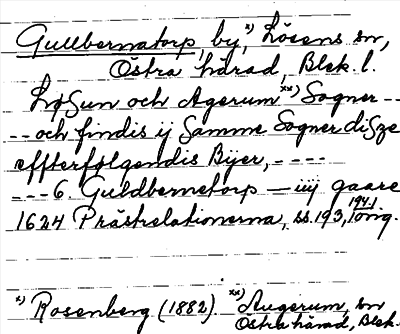 Gullbernatorp, by,x) Lösens sn,
Östra härad, Blek. l.
Løsun och Agerum xx) Sogner --
-- och findis ij Samme Sogner disze
effterfølgendis Bÿer, ----
--- 6. Guldbernetorp — iiij gaare
1624 Prästrelationerna, ss. 193, 194, 1 orig.
x) Rosenberg (1882) xx) Augerum, sn
Östra härad, Blek.